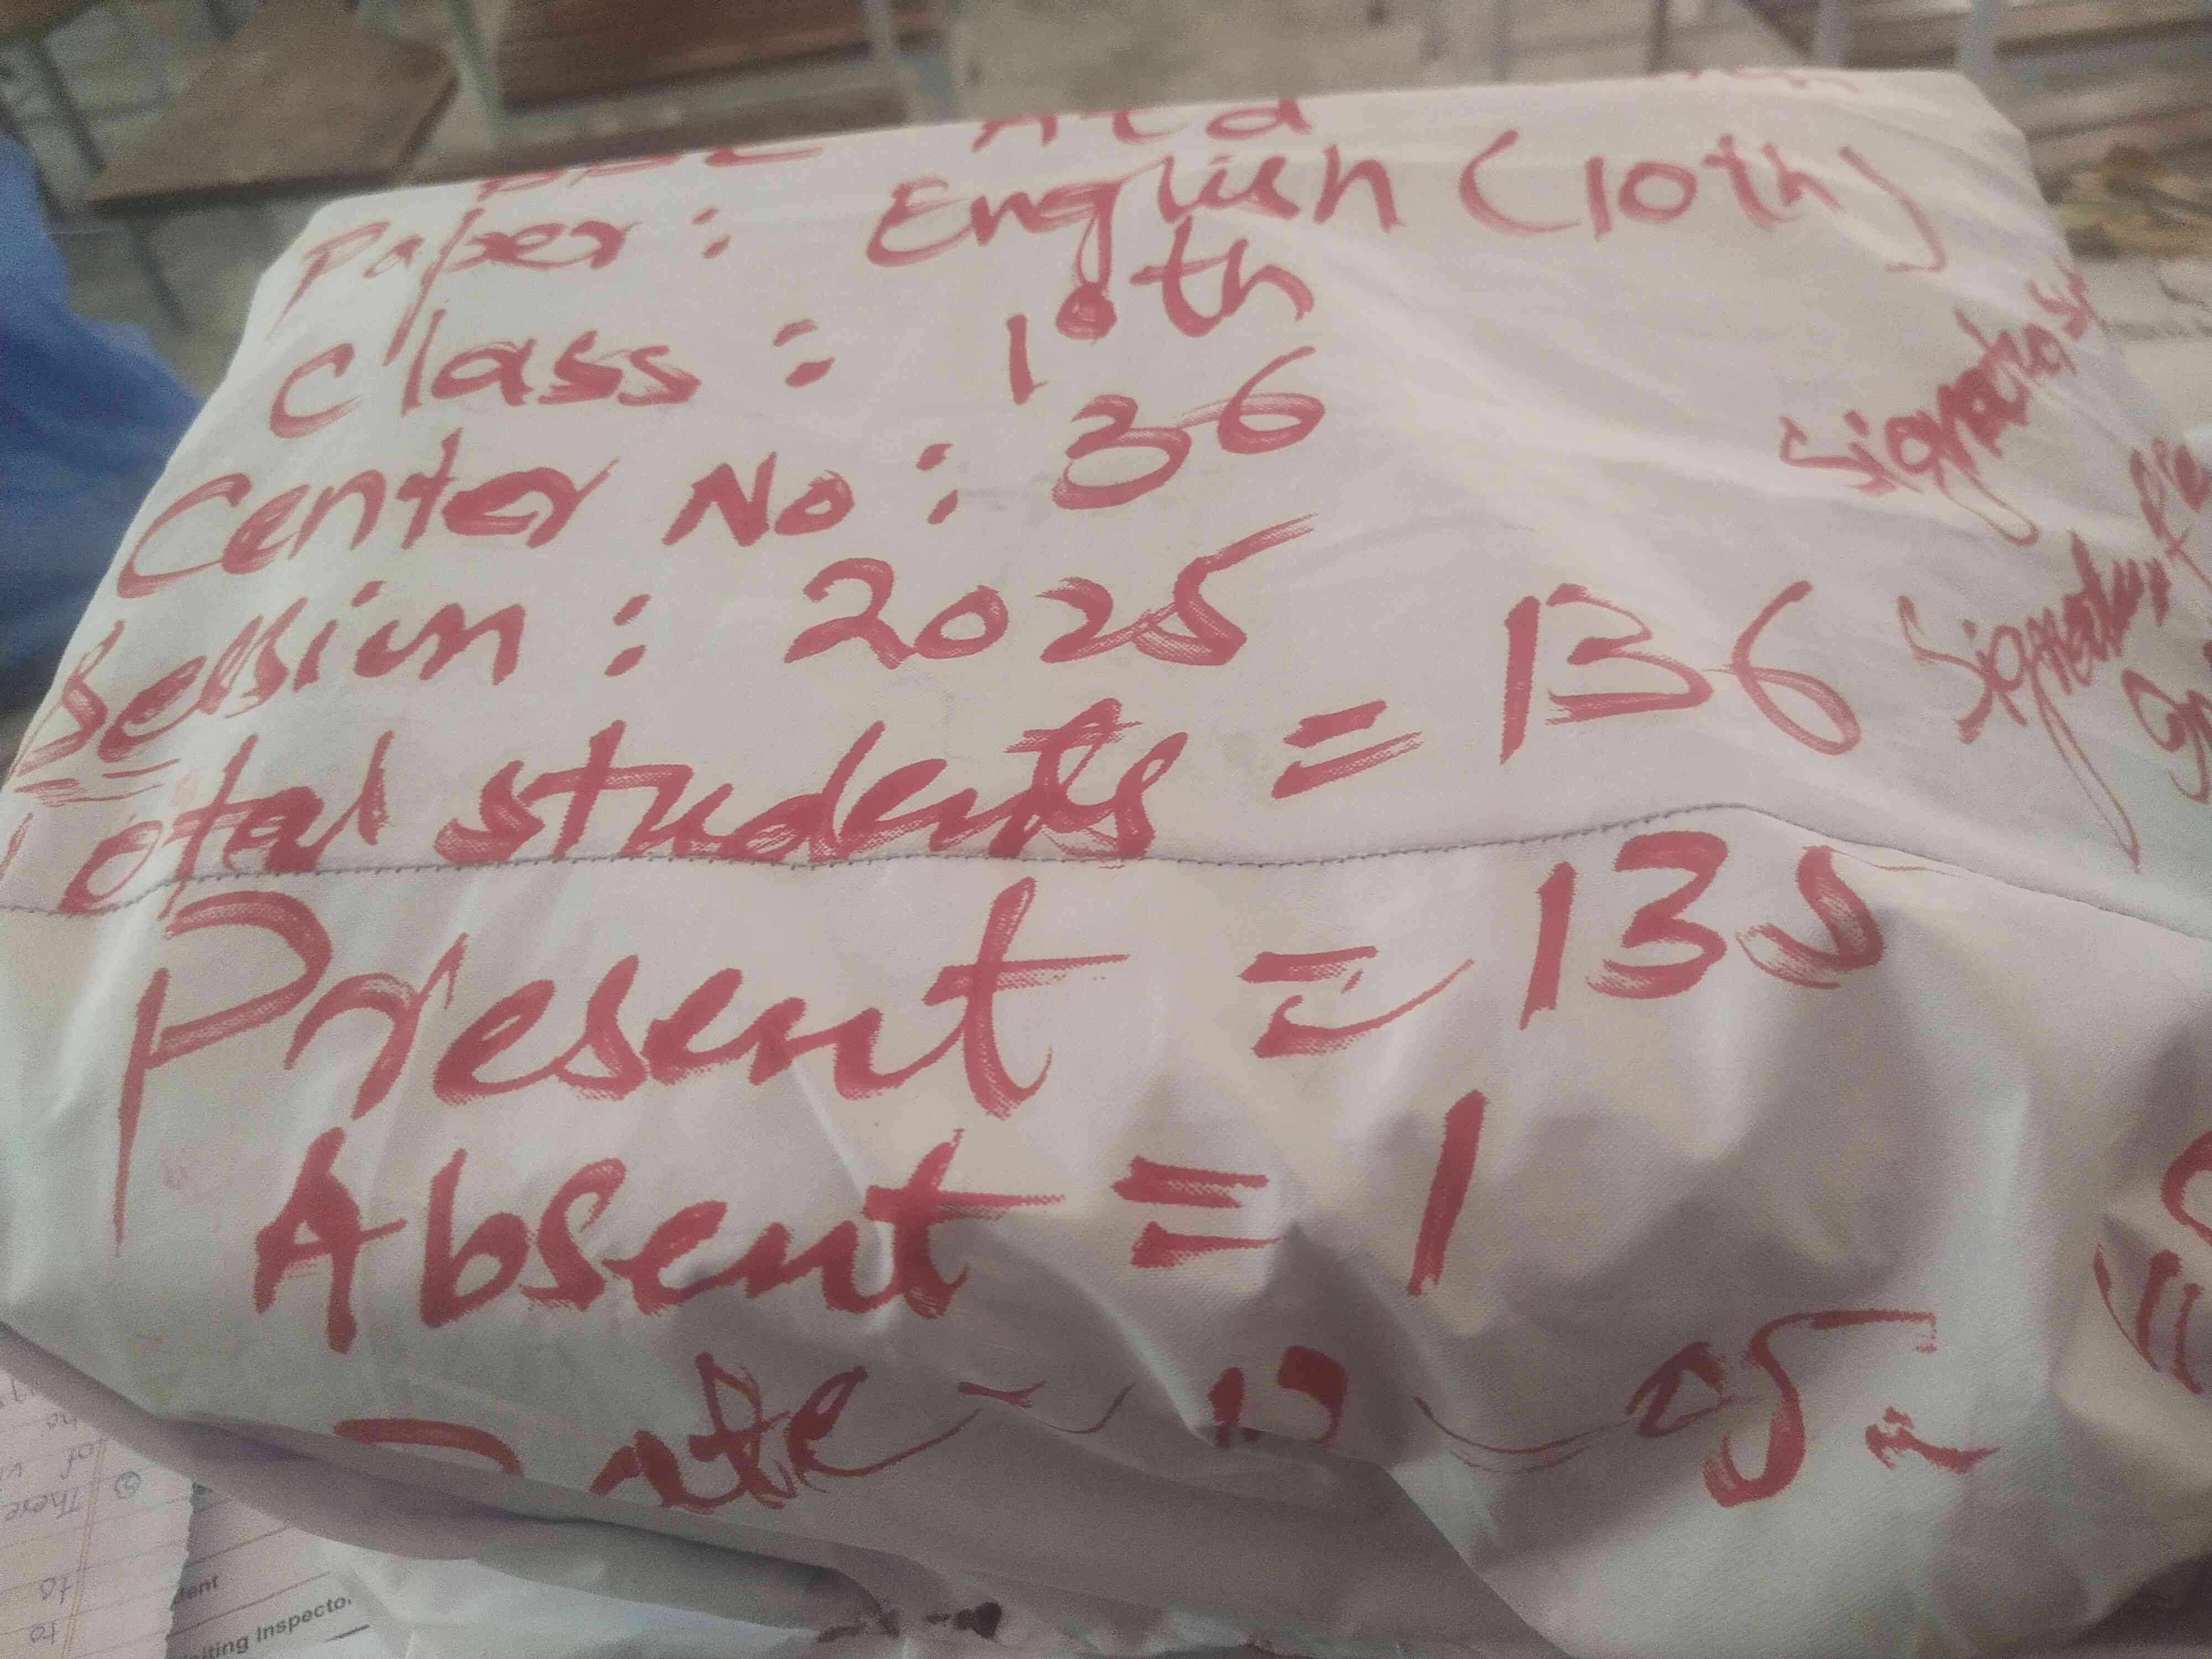 Paper : English (10th)
Class : 10th
Center No : 36
Session : 2025
Total students = 136
Present = 135
Absent = 1
Date
Signature
Signature
There
of
to
to
Inspector